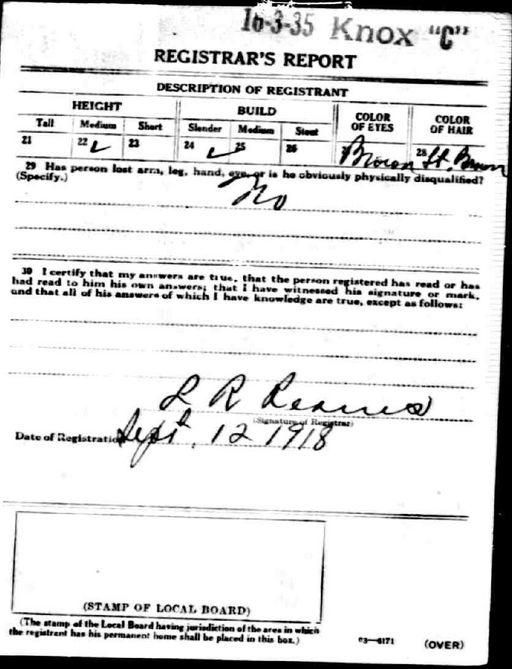 16-3-35 Knox "C"
REGISTRAR'S REPORT
DESCRIPTION OF REGISTRANT
HEIGHT BUILD COLOR OF EYES COLOR OF HAIR
Tall Medium Short Slender Medium Stout
21 22 ✓ 23 24 ✓ 25 26 27 Brown 28 Lt. Brown
29 Has person lost arm, leg, hand, eye, or is he obviously physically disqualified?
(Specify.)
No
30 I certify that my answers are true, that the person registered has read or has
had read to him his own answers; that I have witnessed his signature or mark,
and that all of his answers of which I have knowledge are true, except as follows:
L R Reams
(Signature of Registrar)
Date of Registration Sept. 12 1918
(STAMP OF LOCAL BOARD)
(The stamp of the Local Board having jurisdiction of the area in which
the registrant has his permanent home shall be placed in this box.)
03—6171 (OVER)